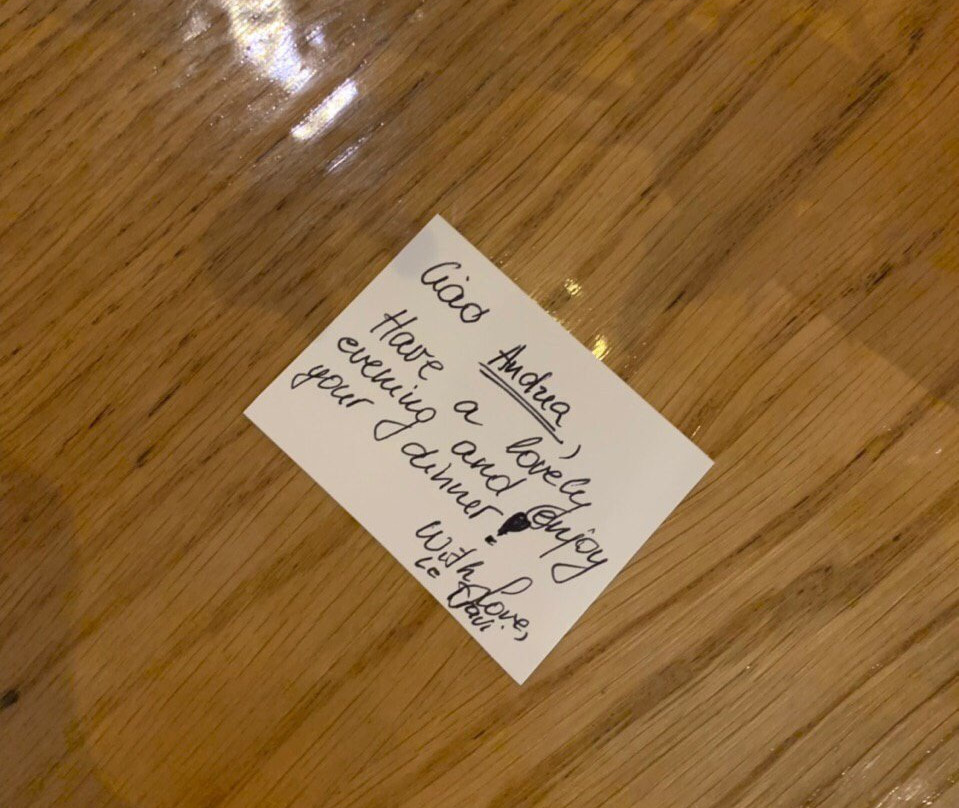 Ciao Andrea,
Have a lovely
evening and enjoy
your dinner!
With Love,
Le